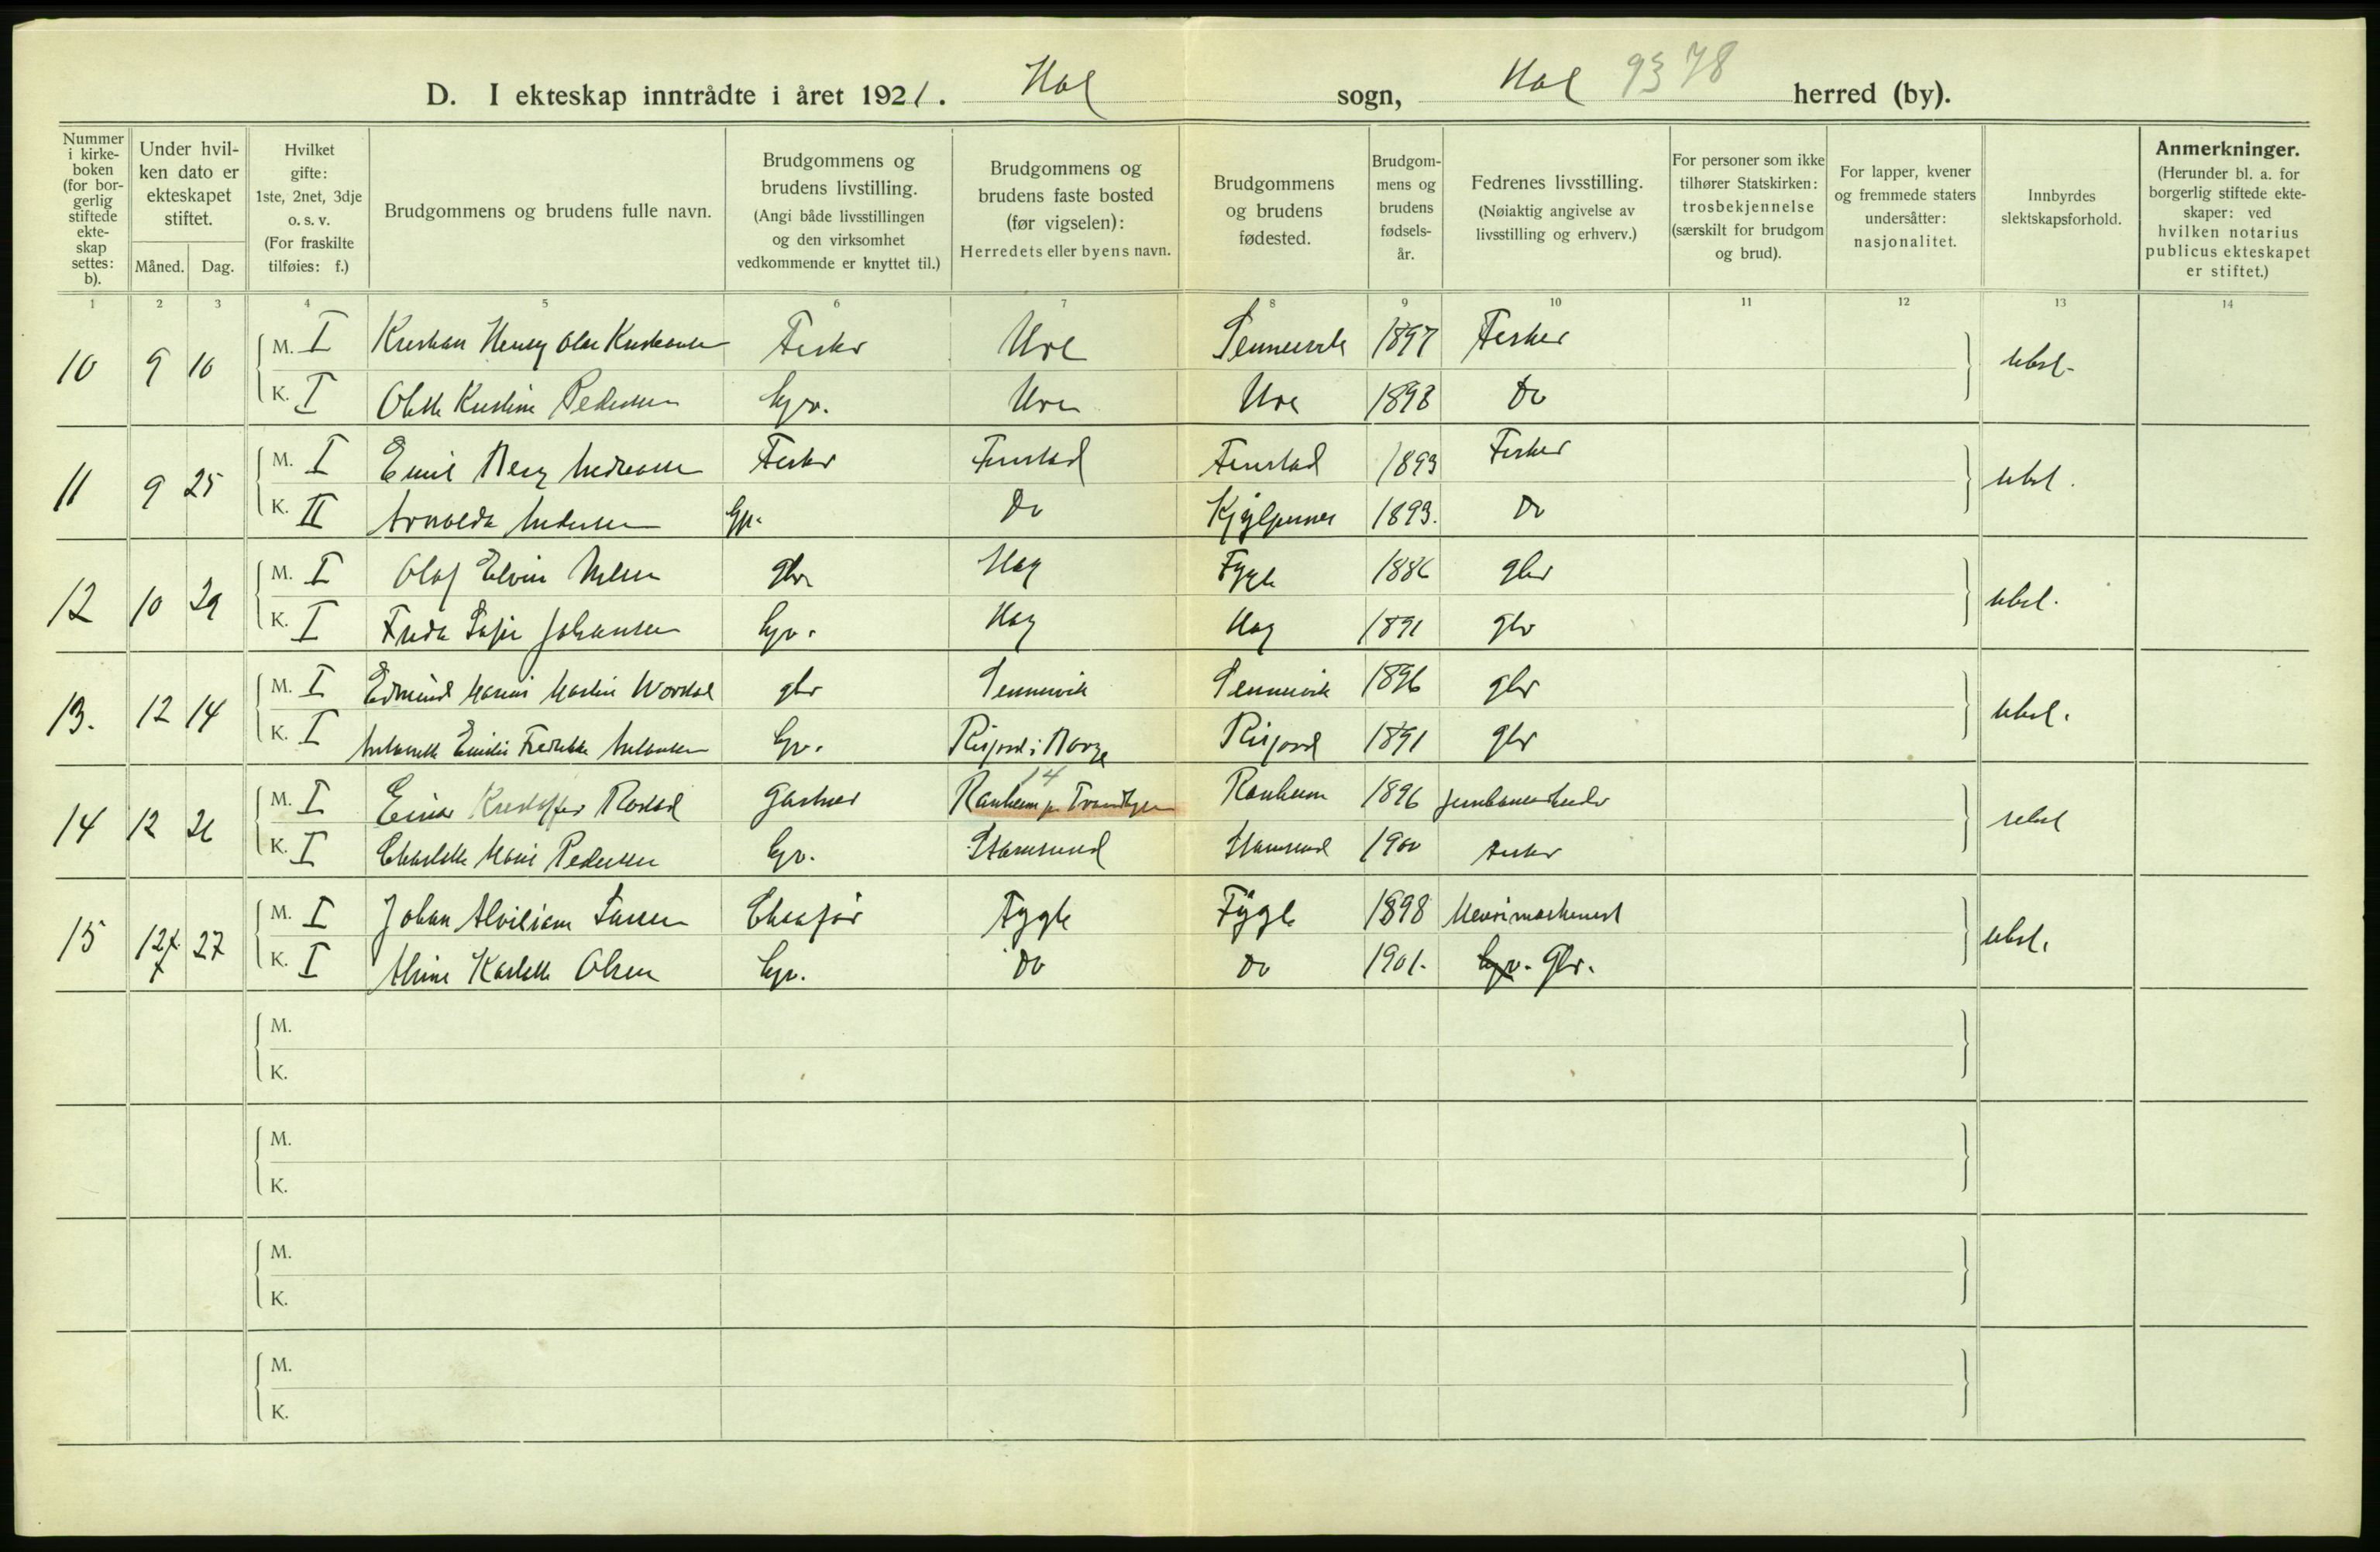 D. I ekteskap inntrådte i året 1921. Hol sogn, Hol 93 78 herred (by).
Nummer i kirkeboken (for borgerlig stiftede ekteskap settes: b).
Under hvilken dato er ekteskapet stiftet.
Måned. Dag.
Hvilket gifte: 1ste, 2net, 3dje o. s. v. (For fraskilte tilføies: f.)
Brudgommens og brudens fulle navn.
Brudgommens og brudens livstilling. (Angi både livsstillingen og den virksomhet vedkommende er knyttet til.)
Brudgommens og brudens faste bosted (før vigselen): Herredets eller byens navn.
Brudgommens og brudens fødested.
Brudgommens og brudens fødselsår.
Fedrenes livsstilling. (Nøiaktig angivelse av livsstilling og erhverv.)
For personer som ikke tilhører Statskirken: trosbekjennelse (særskilt for brudgom og brud).
For lapper, kvener og fremmede staters undersåtter: nasjonalitet.
Innbyrdes slektskapsforhold.
Anmerkninger. (Herunder bl. a. for borgerlig stiftede ekteskaper: ved hvilken notarius publicus ekteskapet er stiftet.)
1 2 3 4 5 6 7 8 9 10 11 12 13 14
10 9 10 M. I Kristian Henry Olai Kristiansen Fisker Ure Sennesvik 1897 Fisker ubsl.
K. I Olette Kristine Pedersen Ure Ure 1898 Do
11 9 25 M. I Emil Berg Andreassen Fisker Finstad Finstad 1893 Fisker ubsl.
K. II Arnolda Andersen Do 1893. Do
12 10 29 M. I Olaf Elvin Nilsen gbr Hag Fygle 1886 gbr ubsl.
K. I Frida Sofie Johansen Hag Hag 1891 gbr
13. 12 14 M. I Edmund Marius Martin gbr Sennesvik Sennesvik 1896 gbr ubsl.
K. I Antonette Emilie Fredrikke Antonsen Risjord i Borge Risjord 1891 gbr
14
14 12 26 M. I Einar Kristoffer Rostad Gartner Ranheim Ranheim 1896 ubsl
K. I Charlotte Marie Pedersen Stamsund Stamsund 1900 Fisker
15 12 27 M. I Johan Alviliam Larsen Chaufør Fygle Fygle 1898 Meierimaskinist ubsl.
K. I Alvine Karlette Olsen Do Do 1901. Gbr.
M.
K.
M.
K.
M.
K.
M.
K.